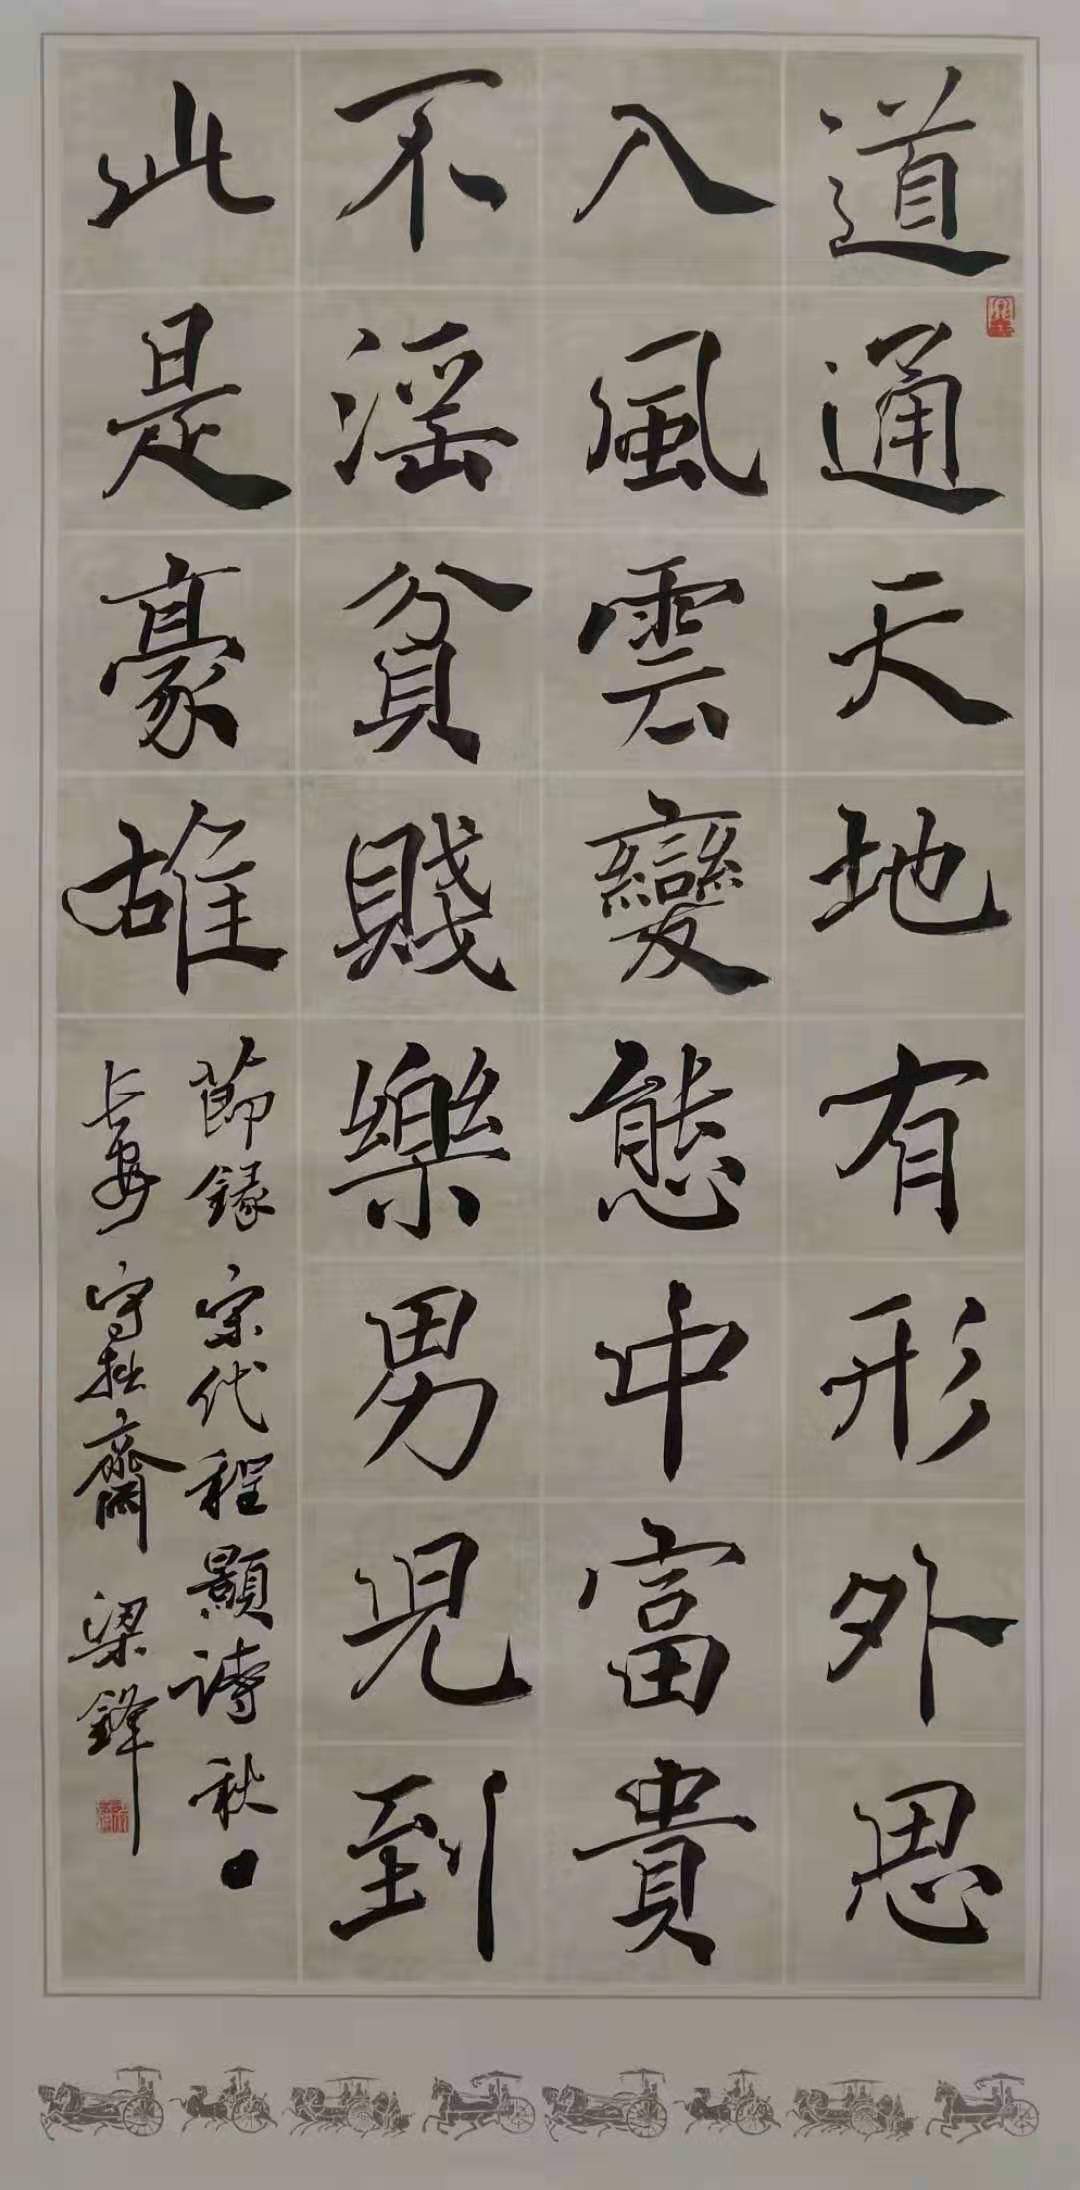 道通天地有形外思
入風雲變態中富貴
不淫貧賤樂男兒到
此是豪雄
節錄宋代程顥詩秋日
長安守拙齋梁鋒